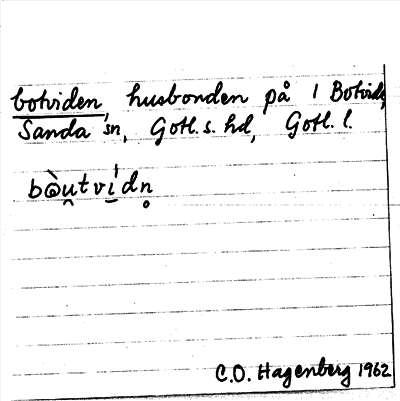 botviden, husbonden på 1 Botvide,
Sanda sn, Gotl. s. hd, Gotl. l.
bὼu̯tvídn̥
C.O. Hagenberg 1962